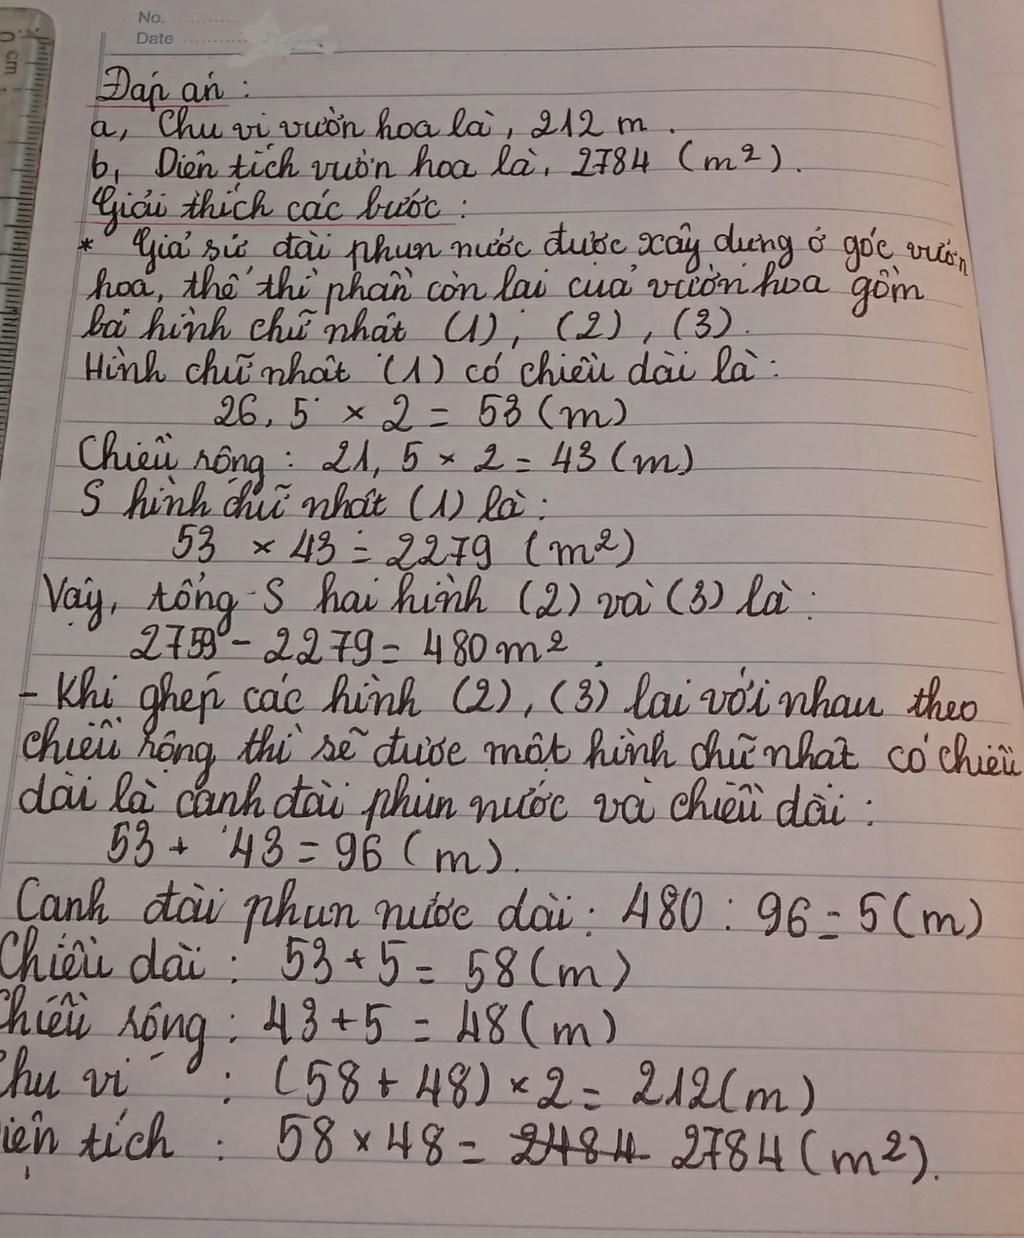 No.
Date
0 cm
Đáp án :
a, Chu vi vườn hoa là, 212 m .
b, Diện tích vườn hoa là, 2784 (m²).
Giải thích các bước :
* Giả sử đài phun nước được xây dựng ở góc vườn
hoa, thế thì phần còn lại của vườn hoa gồm
ba hình chữ nhật (1), (2), (3).
Hình chữ nhật (1) có chiều dài là :
26,5 × 2 = 53 (m)
Chiều rộng : 21,5 × 2 = 43 (m)
S hình chữ nhật (1) là :
53 × 43 = 2279 (m²)
Vậy, tổng S hai hình (2) và (3) là :
2759 - 2279 = 480 m² .
- Khi ghép các hình (2), (3) lại với nhau theo
chiều rộng thì sẽ được một hình chữ nhật có chiều
dài là cạnh đài phun nước và chiều dài :
53 + 43 = 96 (m).
Cạnh đài phun nước dài : 480 : 96 = 5 (m)
Chiều dài : 53 + 5 = 58 (m)
Chiều rộng : 43 + 5 = 48 (m)
Chu vi : (58 + 48) × 2 = 212 (m)
iện tích : 58 × 48 = 2484 2784 (m²).